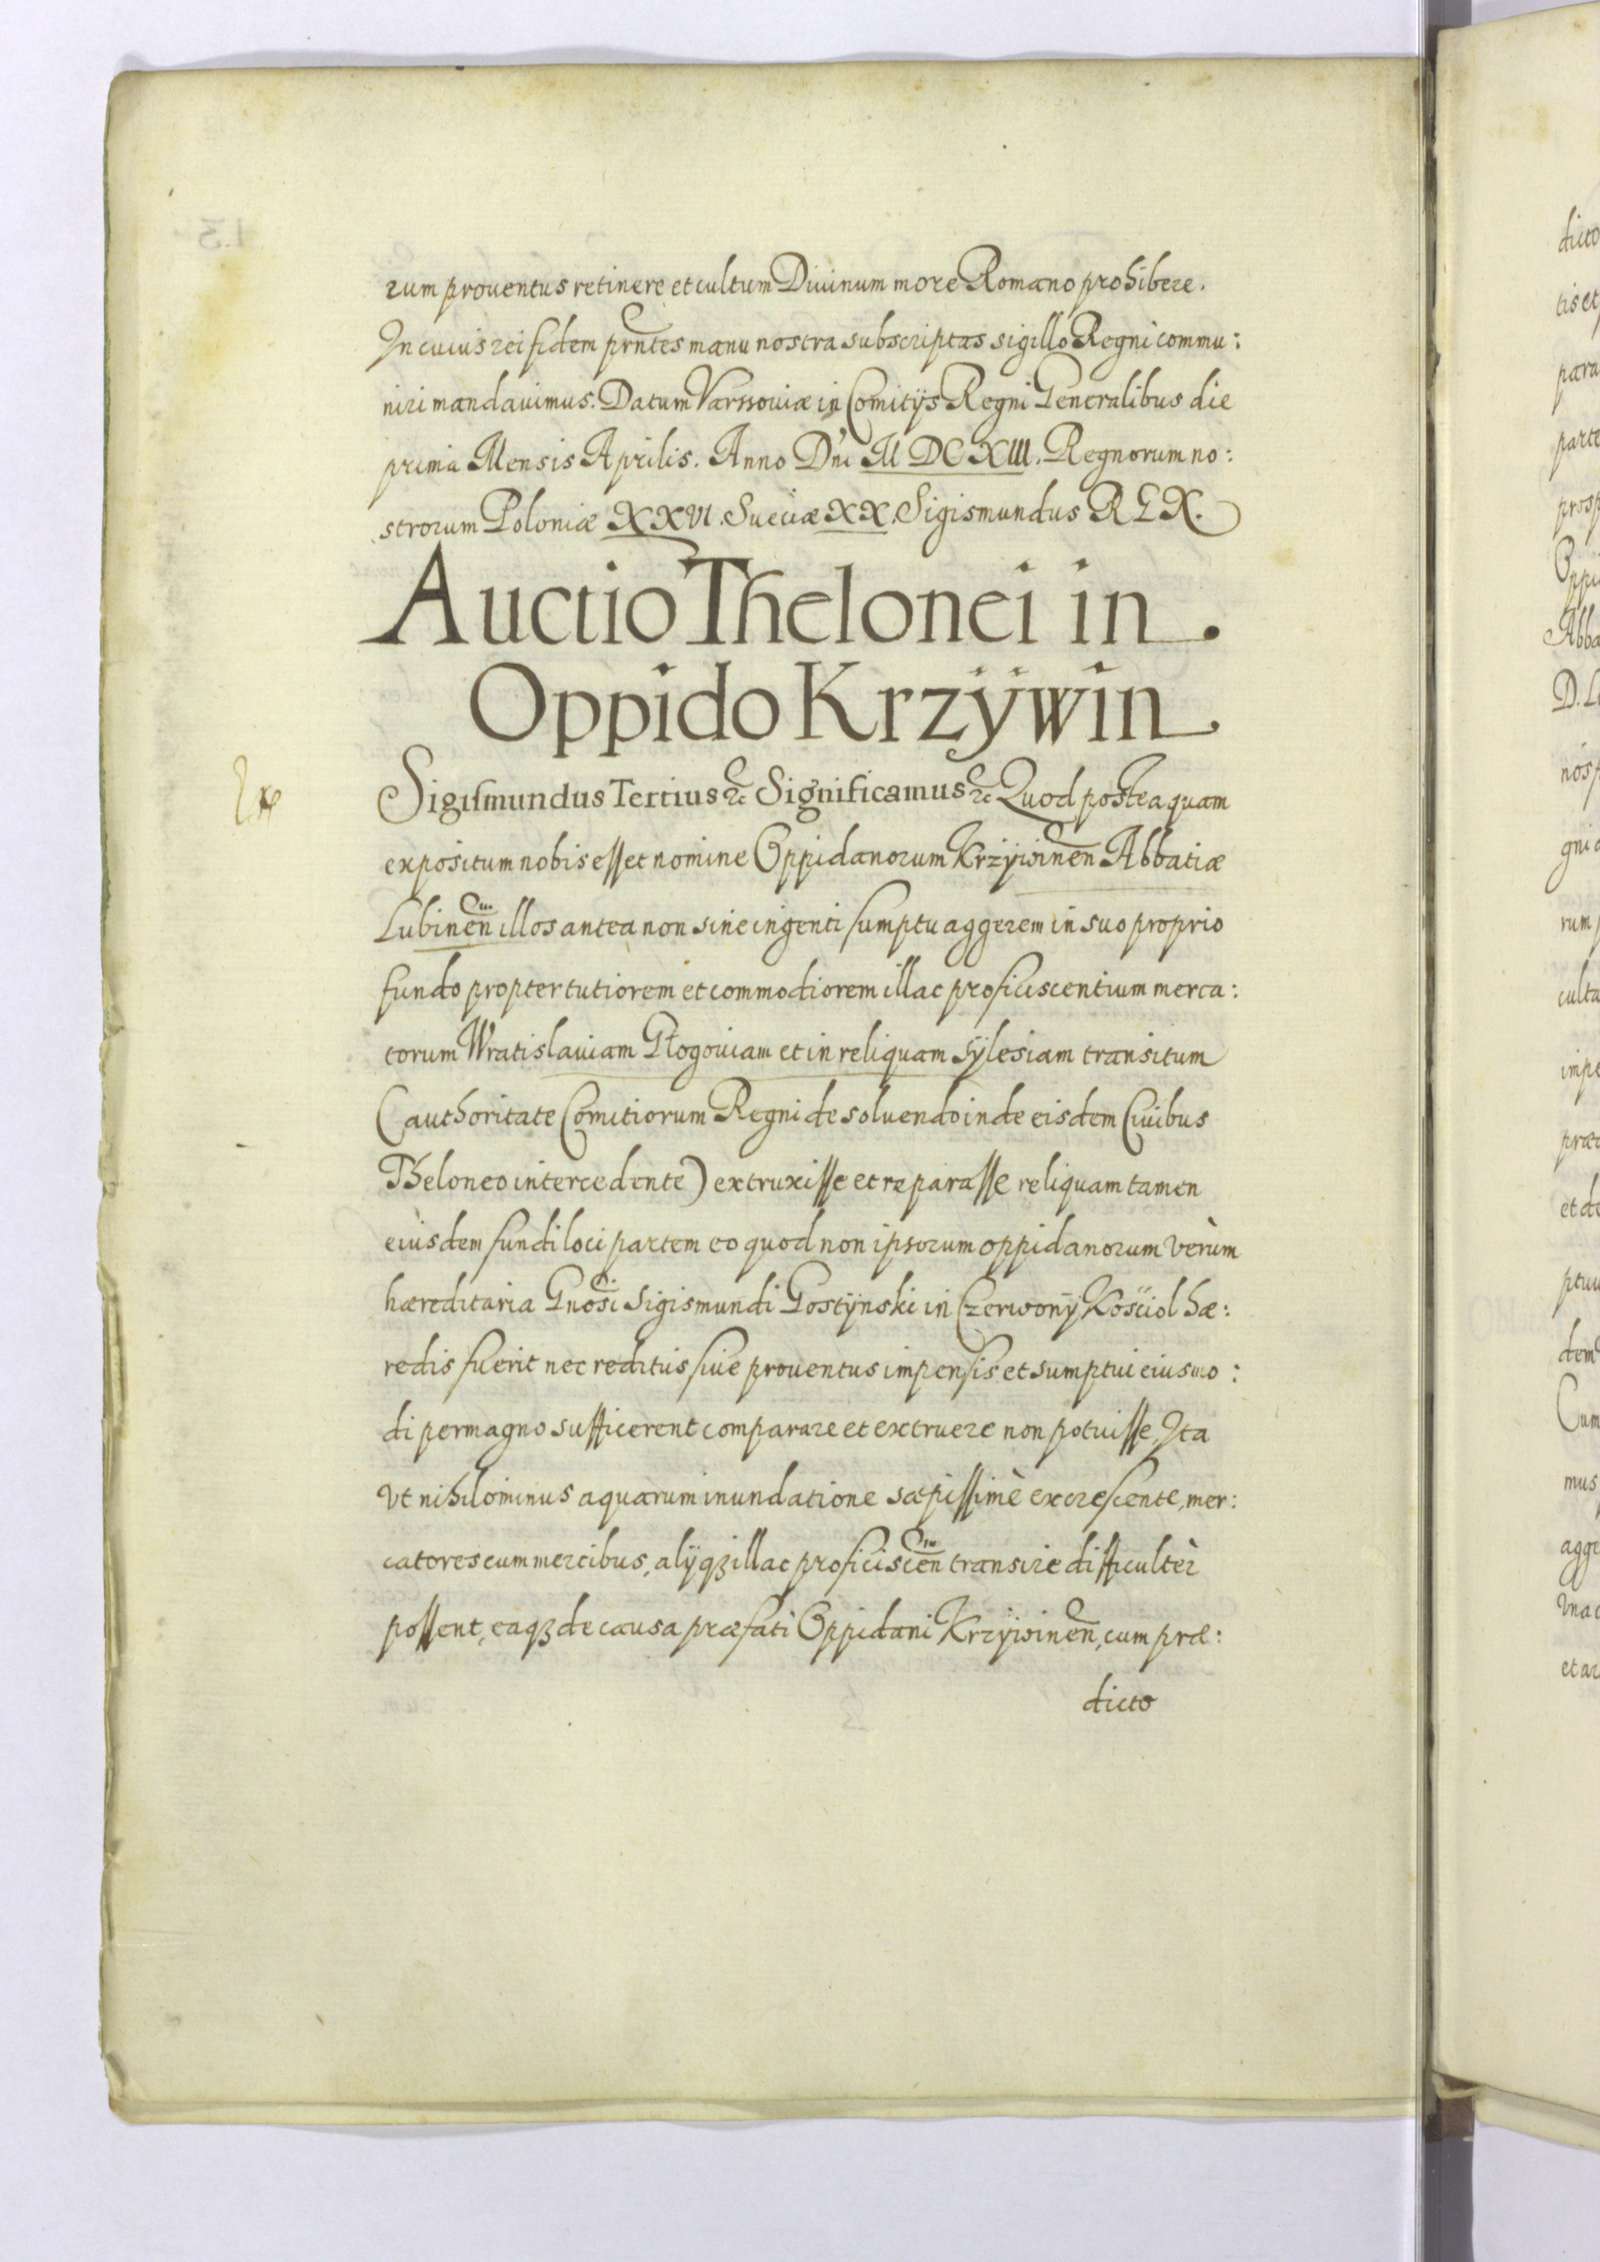 rum prouentus retinere et cultum Diuinum more Romano prohibere.
In cuius rei fidem prntes manu nostra subscriptas sigillo Regni commu:
niri mandauimus. Datum Varssouiæ in Comitÿs Regni Generalibus die
prima Mensis Aprilis. Anno Dni M DC XIII. Regnorum no:
strorum Poloniæ XXVI. Sueciæ XX. Sigismundus REX.
Auctio Thelonei in.
Oppido Krzÿwin.
Sigismundus Tertius &c Significamus &c Quod posteaquam
expositum nobis esset nomine Oppidanorum Krzÿwinen Abbatiæ
Lubinen illos antea non sine ingenti sumptu aggerem in suo proprio
fundo propter tutiorem et commodiorem illac proficiscentium merca:
torum Wratislauiam Głogouiam et in reliquam Sÿlesiam transitum
(authoritate Comitiorum Regni de soluendo inde eisdem Ciuibus
Theloneo intercedente) extruxisse et reparasse reliquam tamen
eiusdem fundi loci partem eo quod non ipsorum oppidanorum verùm
hæreditaria Gnosi Sigismundi Gostÿnski in Czerwonÿ Kościol hæ:
redis fuerit nec reditus siue prouentus impensis et sumptui eiusmo:
di permagno sufficerent comparare et extruere non potuisse. Ita
vt nihilominus aquarum inundatione sæpissimè excrescente, mer:
catores cum mercibus, alÿqꝫ illac proficiscen transire difficultèr
possent, eaqꝫ de causa præfati Oppidani Krzÿwinen, cum præ:
dicto